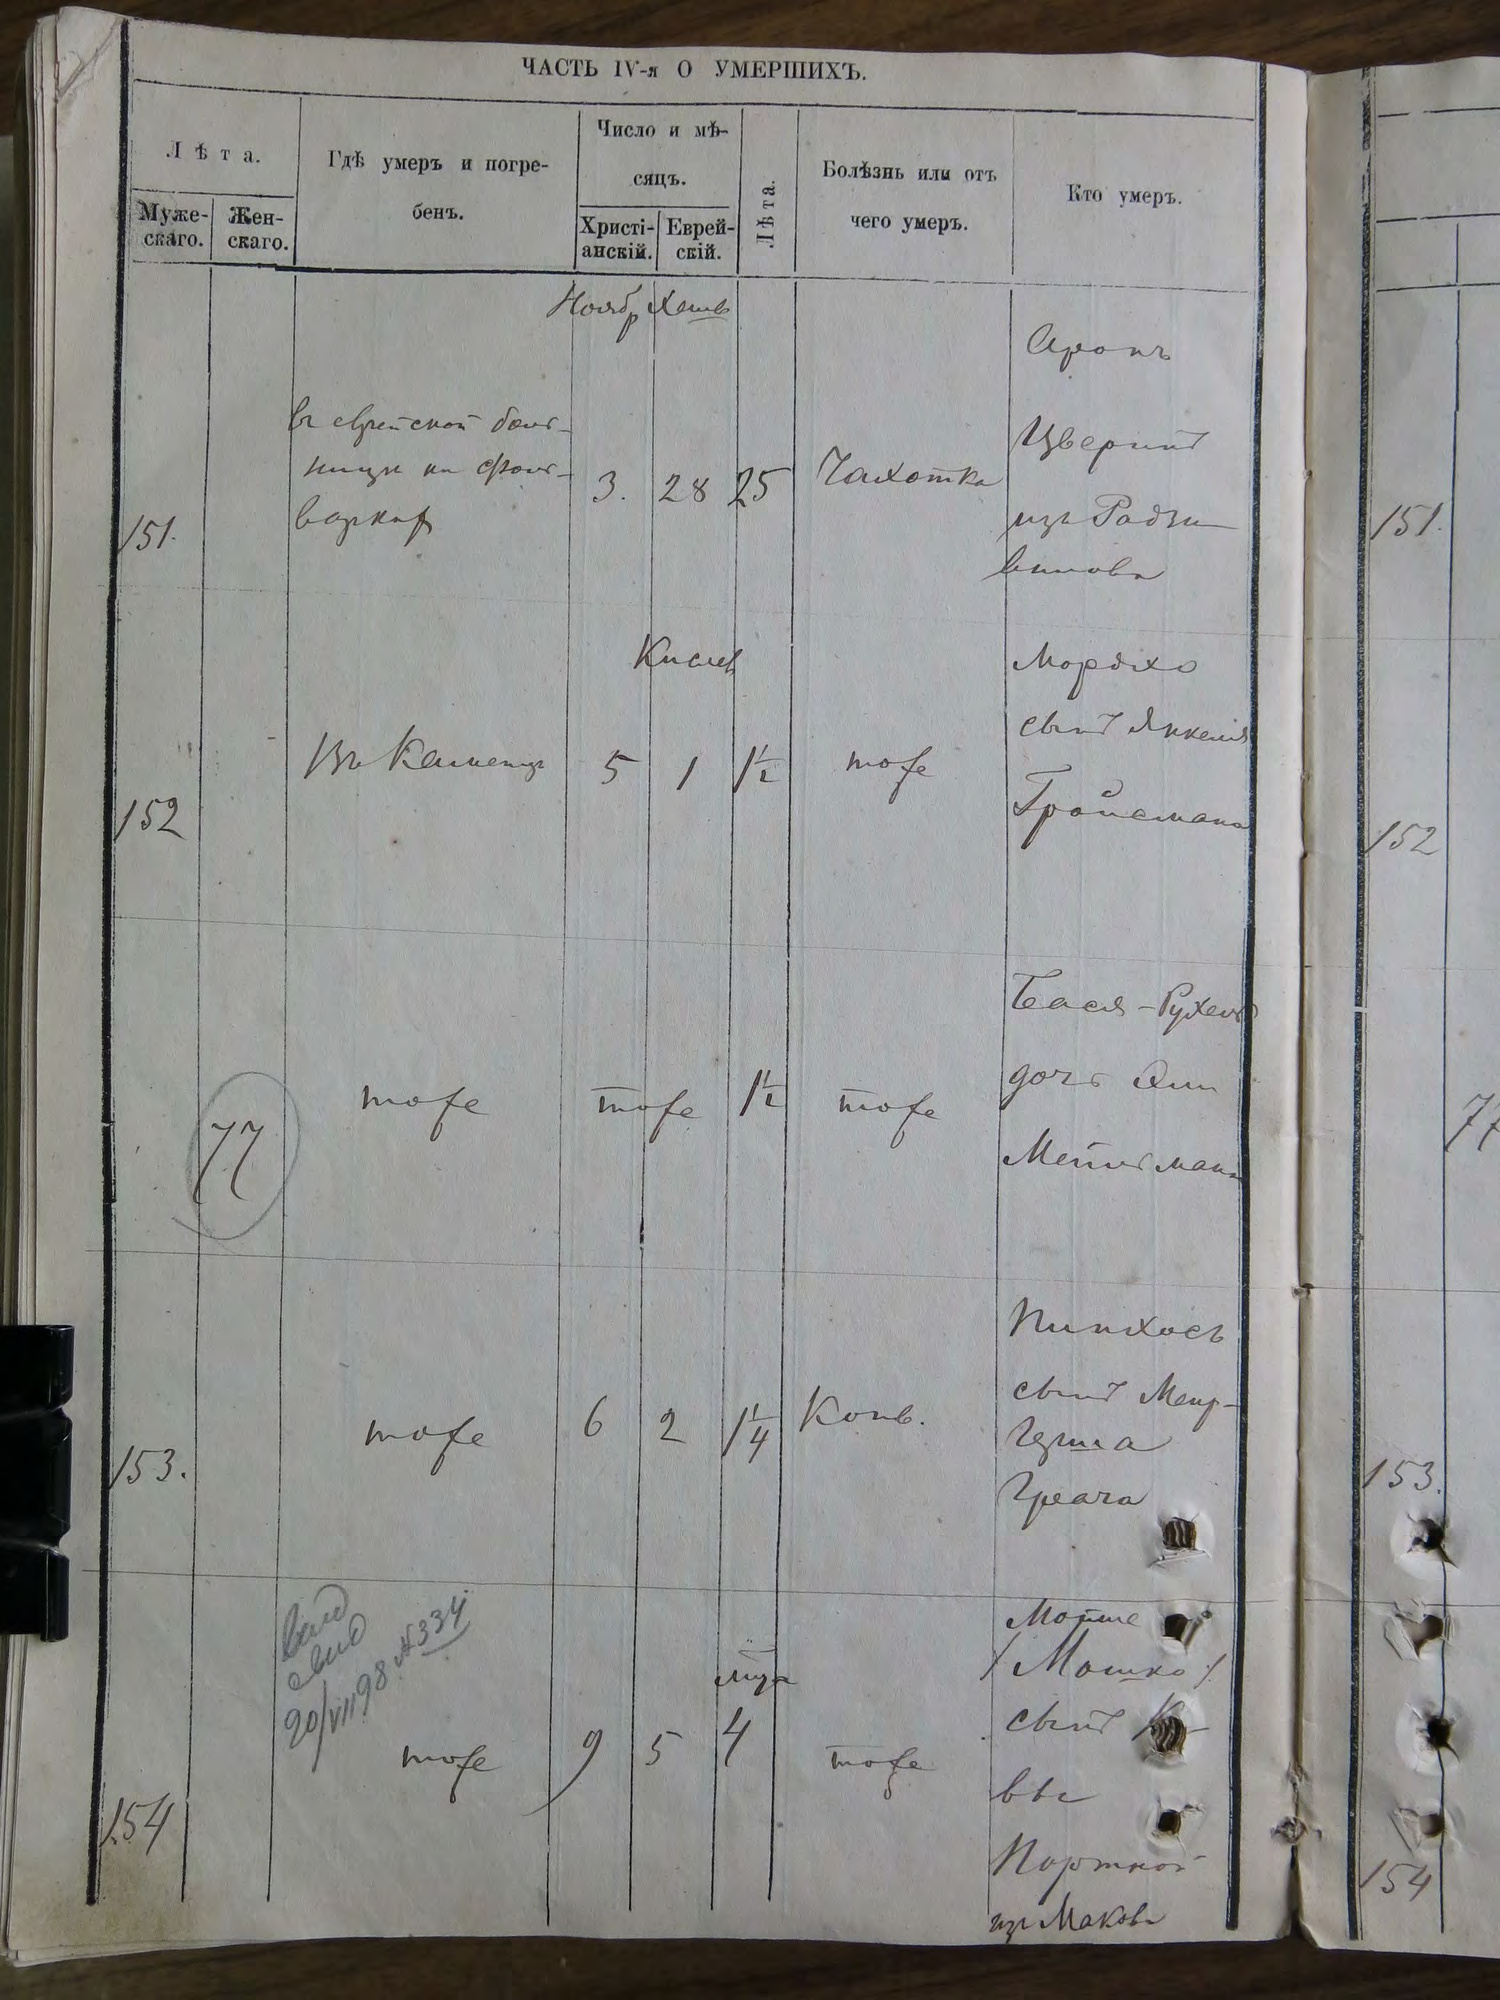 ЧАСТЬ IV-я О УМЕРШИХЪ.
Лѣта.
Муже-
скаго.
Жен-
скаго.
Гдѣ умеръ и погре-
бенъ.
Число и мѣ-
сяцъ.
Христі-
анскій.
Еврей-
скій.
Лѣта.
Болѣзнь или отъ
чего умеръ.
Кто умеръ.
Ноябр Хешв
151.
въ еврейской боль-
ницѣ на Фоль-
варкѣ
3. 28 25
Чахотка
Аронъ
Цверинъ
изъ Радзи
вилова
151.
Кислев
152
Въ Каменцѣ
5 1 1½
тоже
Мордхо
сынъ Янкеля
Гройсмана
152
77
тоже
тоже
1½
тоже
Бася-Рухель
дочь
Мейльмана
77
153.
тоже
6 2 1¼
Конв.
Пинхосъ
сынъ Меир-
Герша
Грача
153.
выд
свид
20/VII 98 №334
154
тоже
9 5 4
мца
тоже
Мойше
/Мошко/
сынъ
Портной
изъ Макова
154